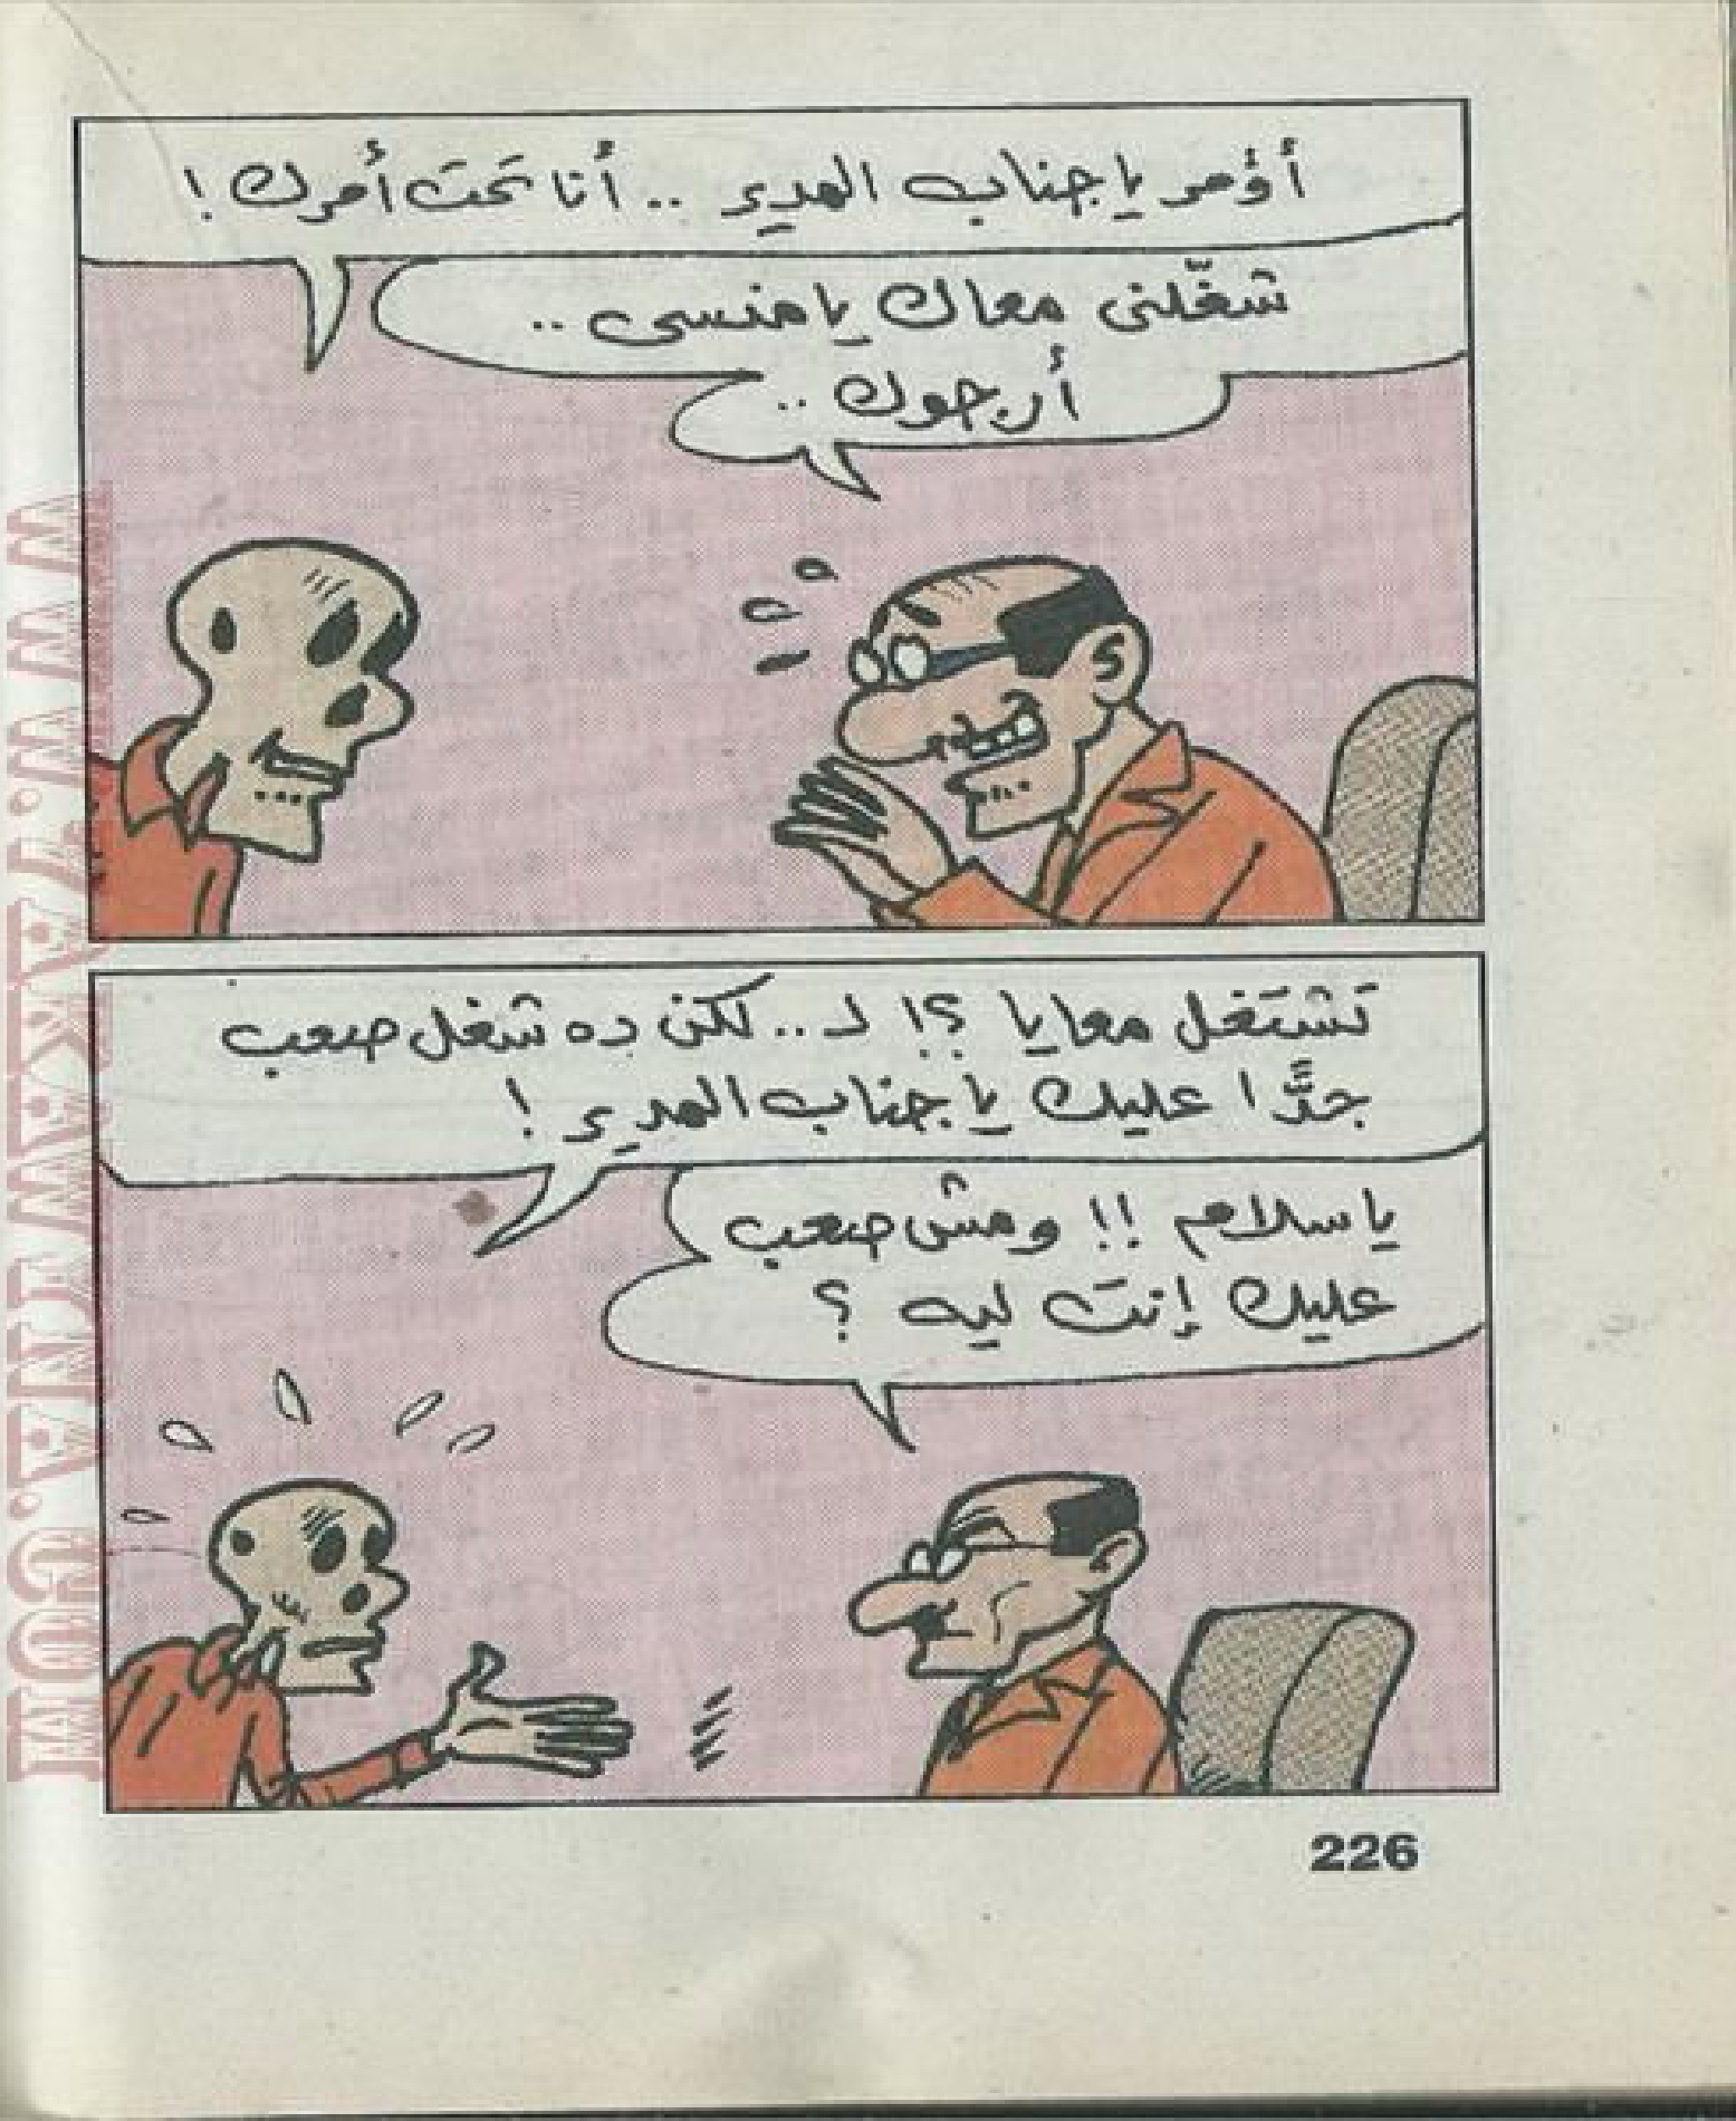 أؤمر يا جناب المدير .. أنا تحت أمرك !
شغّلنى معاك يا منسى ..
أرجوك ..
تشتغل معايا ؟! لـ .. لكن ده شغل صعب
جدًّا عليك يا جناب المدير !
يا سلام !! ومش صعب
عليك إنت ليه ؟
226